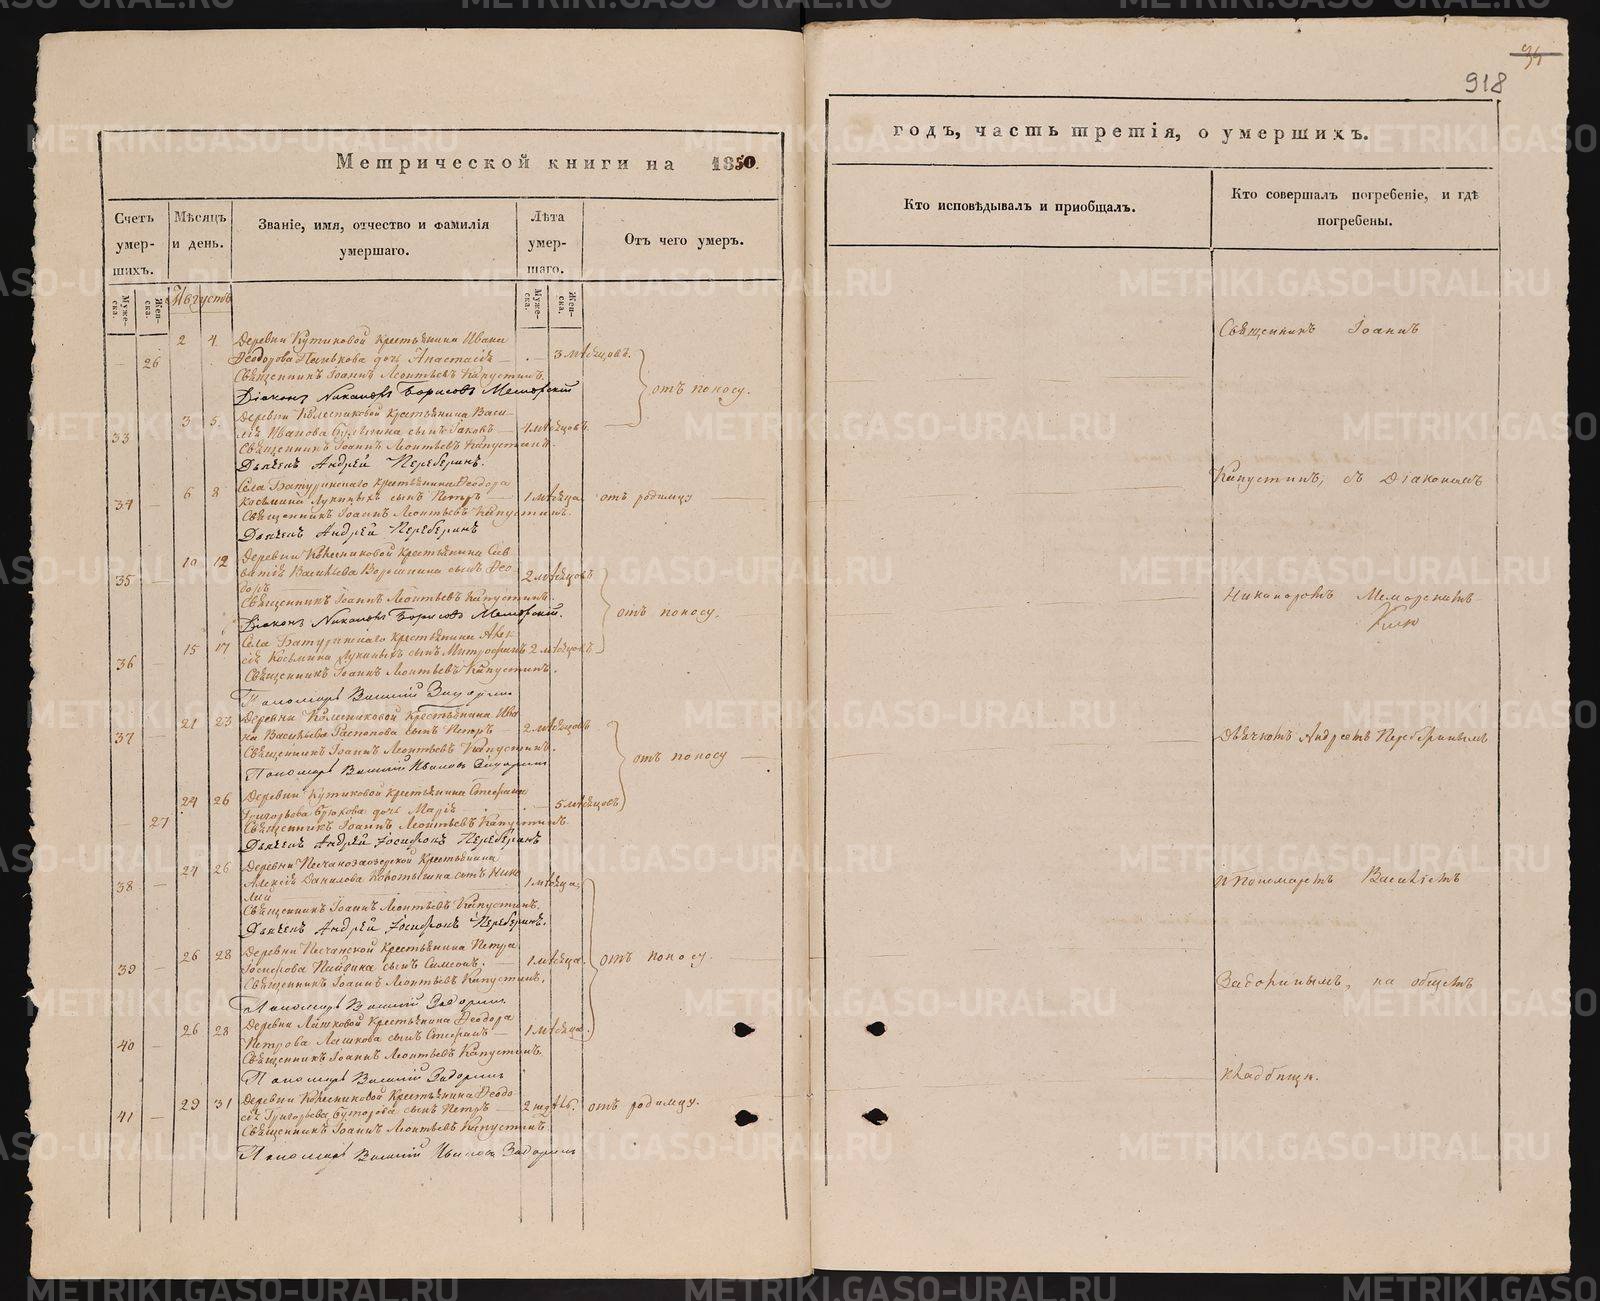 Метрической книги на 1850.
Счетъ умершихъ.
Мѣсяцъ и день.
Званіе, имя, отчество и фамилія умершаго.
Лѣта умершаго.
Отъ чего умеръ.
Мужеска.
Женска.
Августъ
Мужеска.
Женска.
2 4 Деревни Кутиковой Крестьянина Ивана
26 Ѳеодорова дочь Анастасія — 3 мѣсяцовъ.
Священникъ Іоаннъ Леонтьевъ Капустинъ.
Діаконъ Никаноръ Борисовъ
отъ поносу.
3 5 Деревни Колесниковой Крестьянина Васи-
33 лія Иванова сынъ Іаковъ — мѣсяцовъ
Священникъ Іоаннъ Леонтьевъ Капустинъ
Дьячекъ Андрей Переберинъ.
6 8 Села Батуринскаго Крестьянина Ѳеодора
34 — Косьмина Лукиныхъ сынъ Петръ — 1 мѣсяца отъ родимцу
Священникъ Іоаннъ Леонтьевъ Капустинъ.
Дьячекъ Андрей Переберинъ
10 12 Деревни Колесниковой Крестьянина Сав-
35 — ватія Васильева Ворошнина сынъ Ѳео- 2 мѣсяцовъ
доръ
Священникъ Іоаннъ Леонтьевъ Капустинъ.
Діаконъ Никаноръ Борисовъ
отъ поносу.
15 17 Села Батуринскаго Крестьянина Алек-
36 — сія Косьмина Лукиныхъ сынъ Митрофанъ 2 мѣсяцовъ
Священникъ Іоаннъ Леонтьевъ Капустинъ.
Пономарь Василій Задоринъ
21 23 Деревни Колесниковой Крестьянина Ива-
37 — на Васильева Распопова сынъ Петръ — 2 мѣсяцовъ
Священникъ Іоаннъ Леонтьевъ Капустинъ.
Пономарь Василій Ивановъ Задоринъ
отъ поносу
24 26 Деревни Кутиковой Крестьянина Стефана
27 Григорьева дочь Марія — 5 мѣсяцовъ
Священникъ Іоаннъ Леонтьевъ Капустинъ.
Дьячекъ Андрей Іосифовъ Переберинъ
24 26 Деревни Крестьянина
38 — Алексія Данилова сынъ Нико- 1 мѣсяца.
лай
Священникъ Іоаннъ Леонтьевъ Капустинъ.
Дьячекъ Андрей Іосифовъ Переберинъ.
26 28 Деревни Песчанской Крестьянина Петра
39 — Іосифова сынъ Симеонъ. — 1 мѣсяца. отъ поносу.
Священникъ Іоаннъ Леонтьевъ Капустинъ.
Пономарь Василій Задоринъ
26 28 Деревни Ляшковой Крестьянина Ѳеодора
40 — Петрова Ляшкова сынъ Стефанъ — 1 мѣсяца.
Священникъ Іоаннъ Леонтьевъ Капустинъ.
Пономарь Василій Задоринъ
29 31 Деревни Колесниковой Крестьянина Ѳеодо-
41 — сія Григорьева Буторова сынъ Петръ — 2 отъ родимцу.
Священникъ Іоаннъ Леонтьевъ Капустинъ.
Пономарь Василій Ивановъ Задоринъ
918
годъ, часть третія, о умершихъ.
Кто исповѣдывалъ и приобщалъ.
Кто совершалъ погребеніе, и гдѣ погребены.
Священникъ Іоаннъ
Капустинъ, съ Діакономъ
Никаноромъ
Дьячкомъ Андреемъ Переберинымъ
и Пономаремъ Василіемъ
Задоринымъ, на общемъ
кладбищѣ.
METRIKI.GASO-URAL.RU